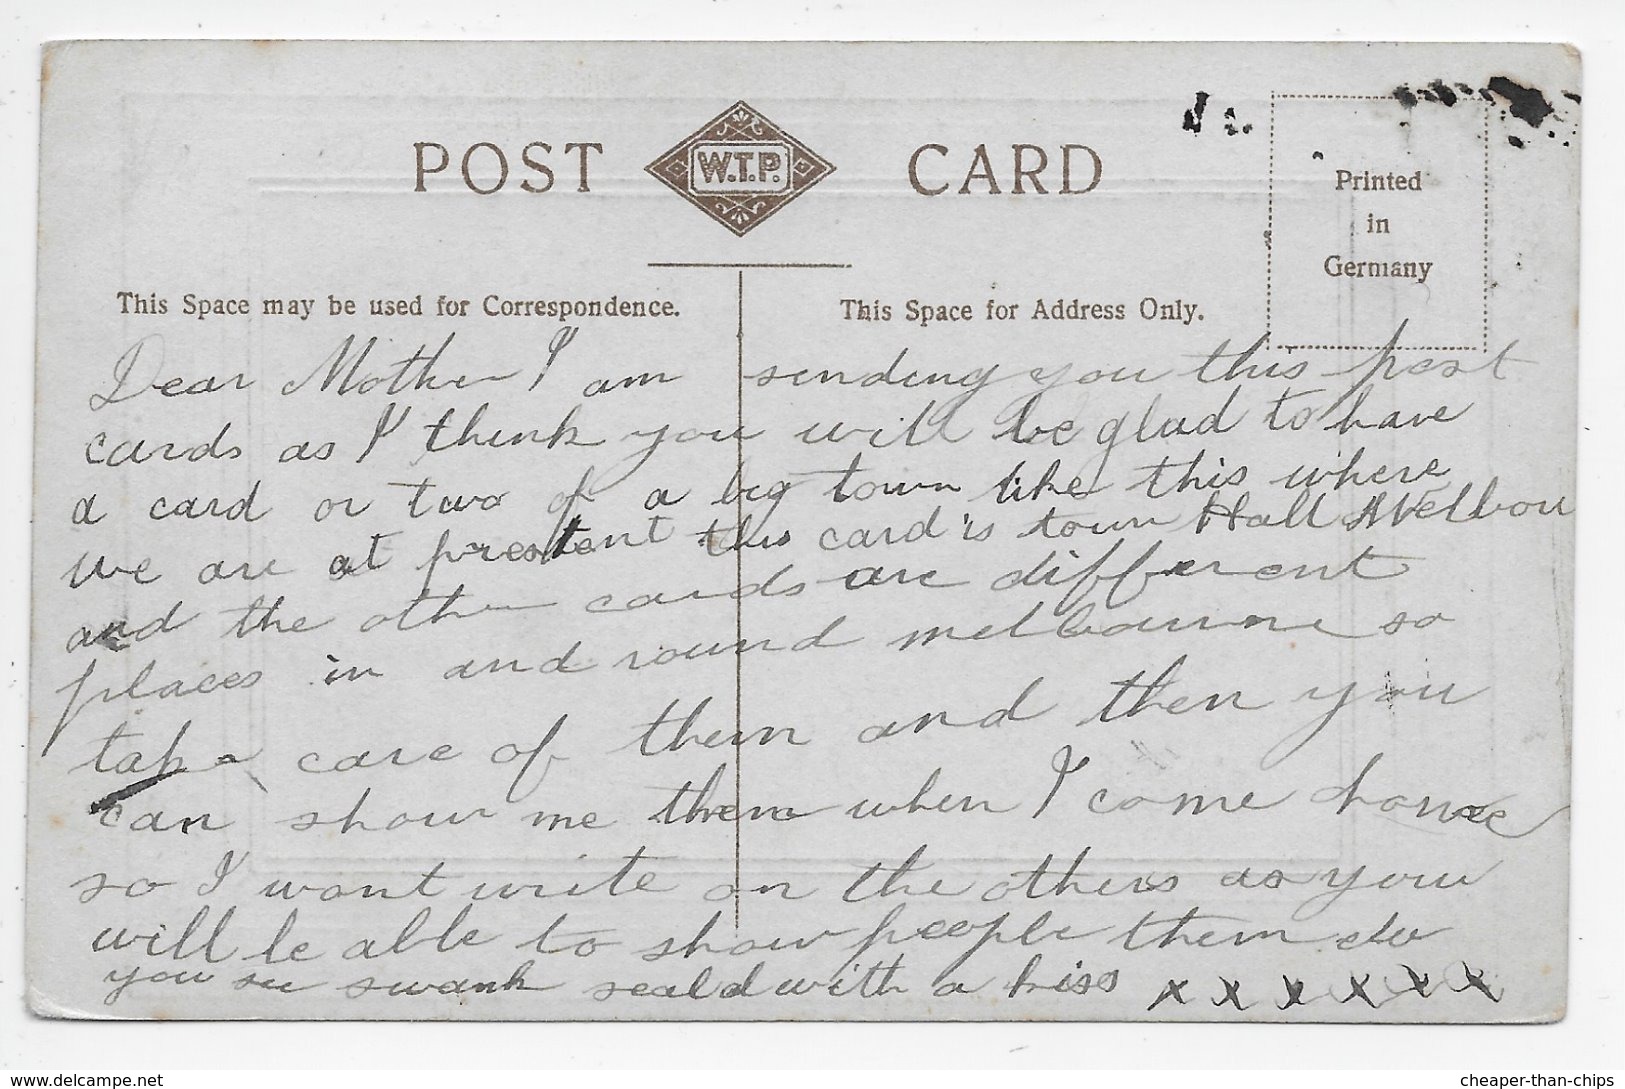 POST W.T.P. CARD
Printed
in
Germany
This Space may be used for Correspondence.
This Space for Address Only.
Dear Mother I am sending you this post
cards as I think you will be glad to have
a card or two of a big town like this where
we are at present this card is town Hall Melbou
and the other cards are different
places in and round melbourne so
take care of them and then you
can show me them when I come home
so I wont write on the others as you
will be able to show people them do
you see swank seald with a kiss x x x x x x
cheaper-than-chips
www.delcampe.net